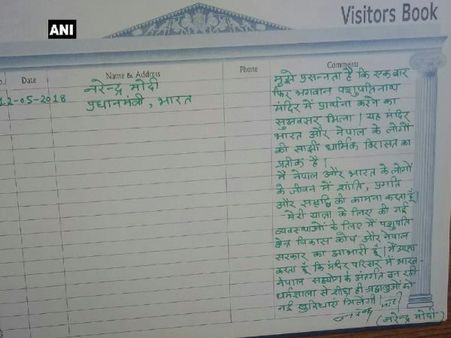 ANI
Visitors Book
Date
Name & Address
Phone
Comments
12-05-2018
नरेन्द्र मोदी
प्रधानमंत्री, भारत
मुझे प्रसन्नता है कि एक बार
फिर भगवान पशुपतिनाथ
मंदिर में प्रार्थना करने का
सुअवसर मिला। यह मंदिर
भारत और नेपाल के लोगों
की साझी धार्मिक विरासत का
प्रतीक है।
मैं नेपाल और भारत के लोगों
के जीवन में शांति, प्रगति
और समृद्धि की कामना करता हूँ।
मेरी यात्रा के लिए की गई
व्यवस्थाओं के लिए मैं पशुपति
क्षेत्र विकास कोष और नेपाल
सरकार का आभारी हूँ। मैं आशा
करता हूँ कि मंदिर परिसर में भारत-
नेपाल सहयोग के अंतर्गत बन रही
धर्मशाला से शीघ्र ही श्रद्धालुओं को
नई सुविधाएं मिलेगी।
(नरेन्द्र मोदी)